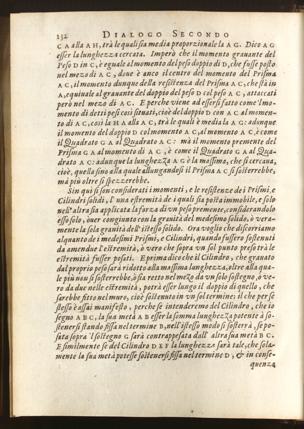 132 DIALOGO SECONDO
CA alla AH, trà le quali sia media proporzionale la AG. Dico AG
esser la lunghezza cercata. Imperò che il momento gravante del
Peso D in C, è eguale al momento del peso doppio di D, che fusse posto
nel mezo di AC, dove è anco il centro del momento del Prisma
AC, il momento dunque della resistenza del Prisma AC, che stà in
A, equivale al gravante del doppio del peso D col peso AC, attaccati
però nel mezo di AC. E perche viene ad essersi fatto come 'l mo-
mento di detti pesi così situati, cioè del doppio D con AC al momen-
to di AC, così la HA alla AC, trà le quali è media la AG: adunque
il momento del doppio D col momento AC, al momento AC, è come
il Quadrato GA al Quadrato AC: mà il momento premente del
Prisma GA al momento di AC, è come il Quadrato GA al Qua-
drato AC: adunque la lunghezza AG è la massima, che si cercava,
cioè, quella sino alla quale allungandosi il Prisma AC si sosterrebbe,
mà più oltre si spezzerebbe.
Sin quì si son considerati i momenti, e le resistenze de i Prismi, e
Cilindri solidi, l'una estremità de i quali sia posta immobile, e solo
nell'altra sia applicata la forza di un peso premente, considerandolo
esso solo, ò ver congiunto con la gravità del medesimo solido, ò vera-
mente la sola gravità dell'istesso solido. Ora voglio che discorriamo
alquanto de i medesimi Prismi, e Cilindri, quando fussero sostenuti
da amendue l'estremità, ò vero che sopra un sol punto preso trà le
estremità fusser posati. E prima dico che il Cilindro, che gravato
dal proprio peso sarà ridotto alla massima lunghezza, oltre alla qua-
le più non si sosterrebbe, ò sia retto nel mezo da un solo sostegno, ò ve-
ro da due nelle estremità, potrà esser lungo il doppio di quello, che
sarebbe fitto nel muro, cioè sostenuto in un sol termine: il che per se
stesso è assai manifesto, perche se intenderemo del Cilindro, che io
segno ABC, la sua metà AB esser la somma lunghezza potente à so-
stenersi stando fissa nel termine B, nell'istesso modo si sosterrà, se po-
sata sopra 'l sostegno G sarà contrappesata dall'altra sua metà BC.
E similmente se del Cilindro DEF la lunghezza sarà tale, che sola-
mente la sua metà potesse sostenersi fissa nel termine D, & in conse-
quenza